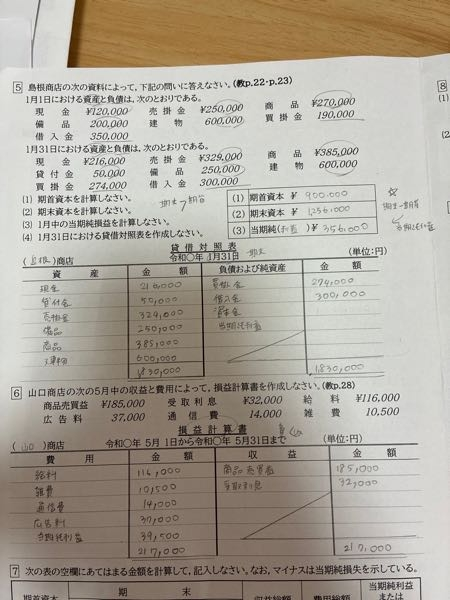 5 島根商店の次の資料によって，下記の問いに答えなさい。(教p.22-p.23)
1月1日における資産と負債は，次のとおりである。
現金 ¥120,000 売掛金 ¥250,000 商品 ¥270,000
備品 200,000 建物 600,000 買掛金 190,000
借入金 350,000
1月31日における資産と負債は，次のとおりである。
現金 ¥216,000 売掛金 ¥329,000 商品 ¥385,000
貸付金 50,000 備品 250,000 建物 600,000
買掛金 274,000 借入金 300,000
(1) 期首資本を計算しなさい。
(2) 期末資本を計算しなさい。
(3) 1月中の当期純損益を計算しなさい。
(4) 1月31日における貸借対照表を作成しなさい。
期末>期首
(1) 期首資本 ¥ 900,000
(2) 期末資本 ¥ 1,256,000
(3) 当期純(利益) ¥ 356,000
☆
期末-期首
当期純利益
貸借対照表
(島根)商店 令和〇年 1月31日 期末 (単位:円)
資産 金額 負債および純資産 金額
現金 216,000 買掛金 274,000
貸付金 50,000 借入金 300,000
売掛金 329,000 資本金
備品 250,000 当期純利益
商品 385,000
建物 600,000
1,830,000 1,830,000
6 山口商店の次の5月中の収益と費用によって，損益計算書を作成しなさい。(教p.28)
商品売買益 ¥185,000 受取利息 ¥32,000 給料 ¥116,000
広告料 37,000 通信費 14,000 雑費 10,500
損益計算書
(山口)商店 令和〇年 5月 1日から令和〇年 5月31日まで (単位:円)
費用 金額 収益 金額
給料 116,000 商品売買益 185,000
雑費 10,500 受取利息 32,000
通信費 14,000
広告料 37,000
当期純利益 39,500
217,000 217,000
7 次の表の空欄にあてはまる金額を計算して，記入しなさい。なお，マイナスは当期純損失を示している。
期首資本 期末 収益総額 費用総額 当期純利益
または
8
(1)
(2)